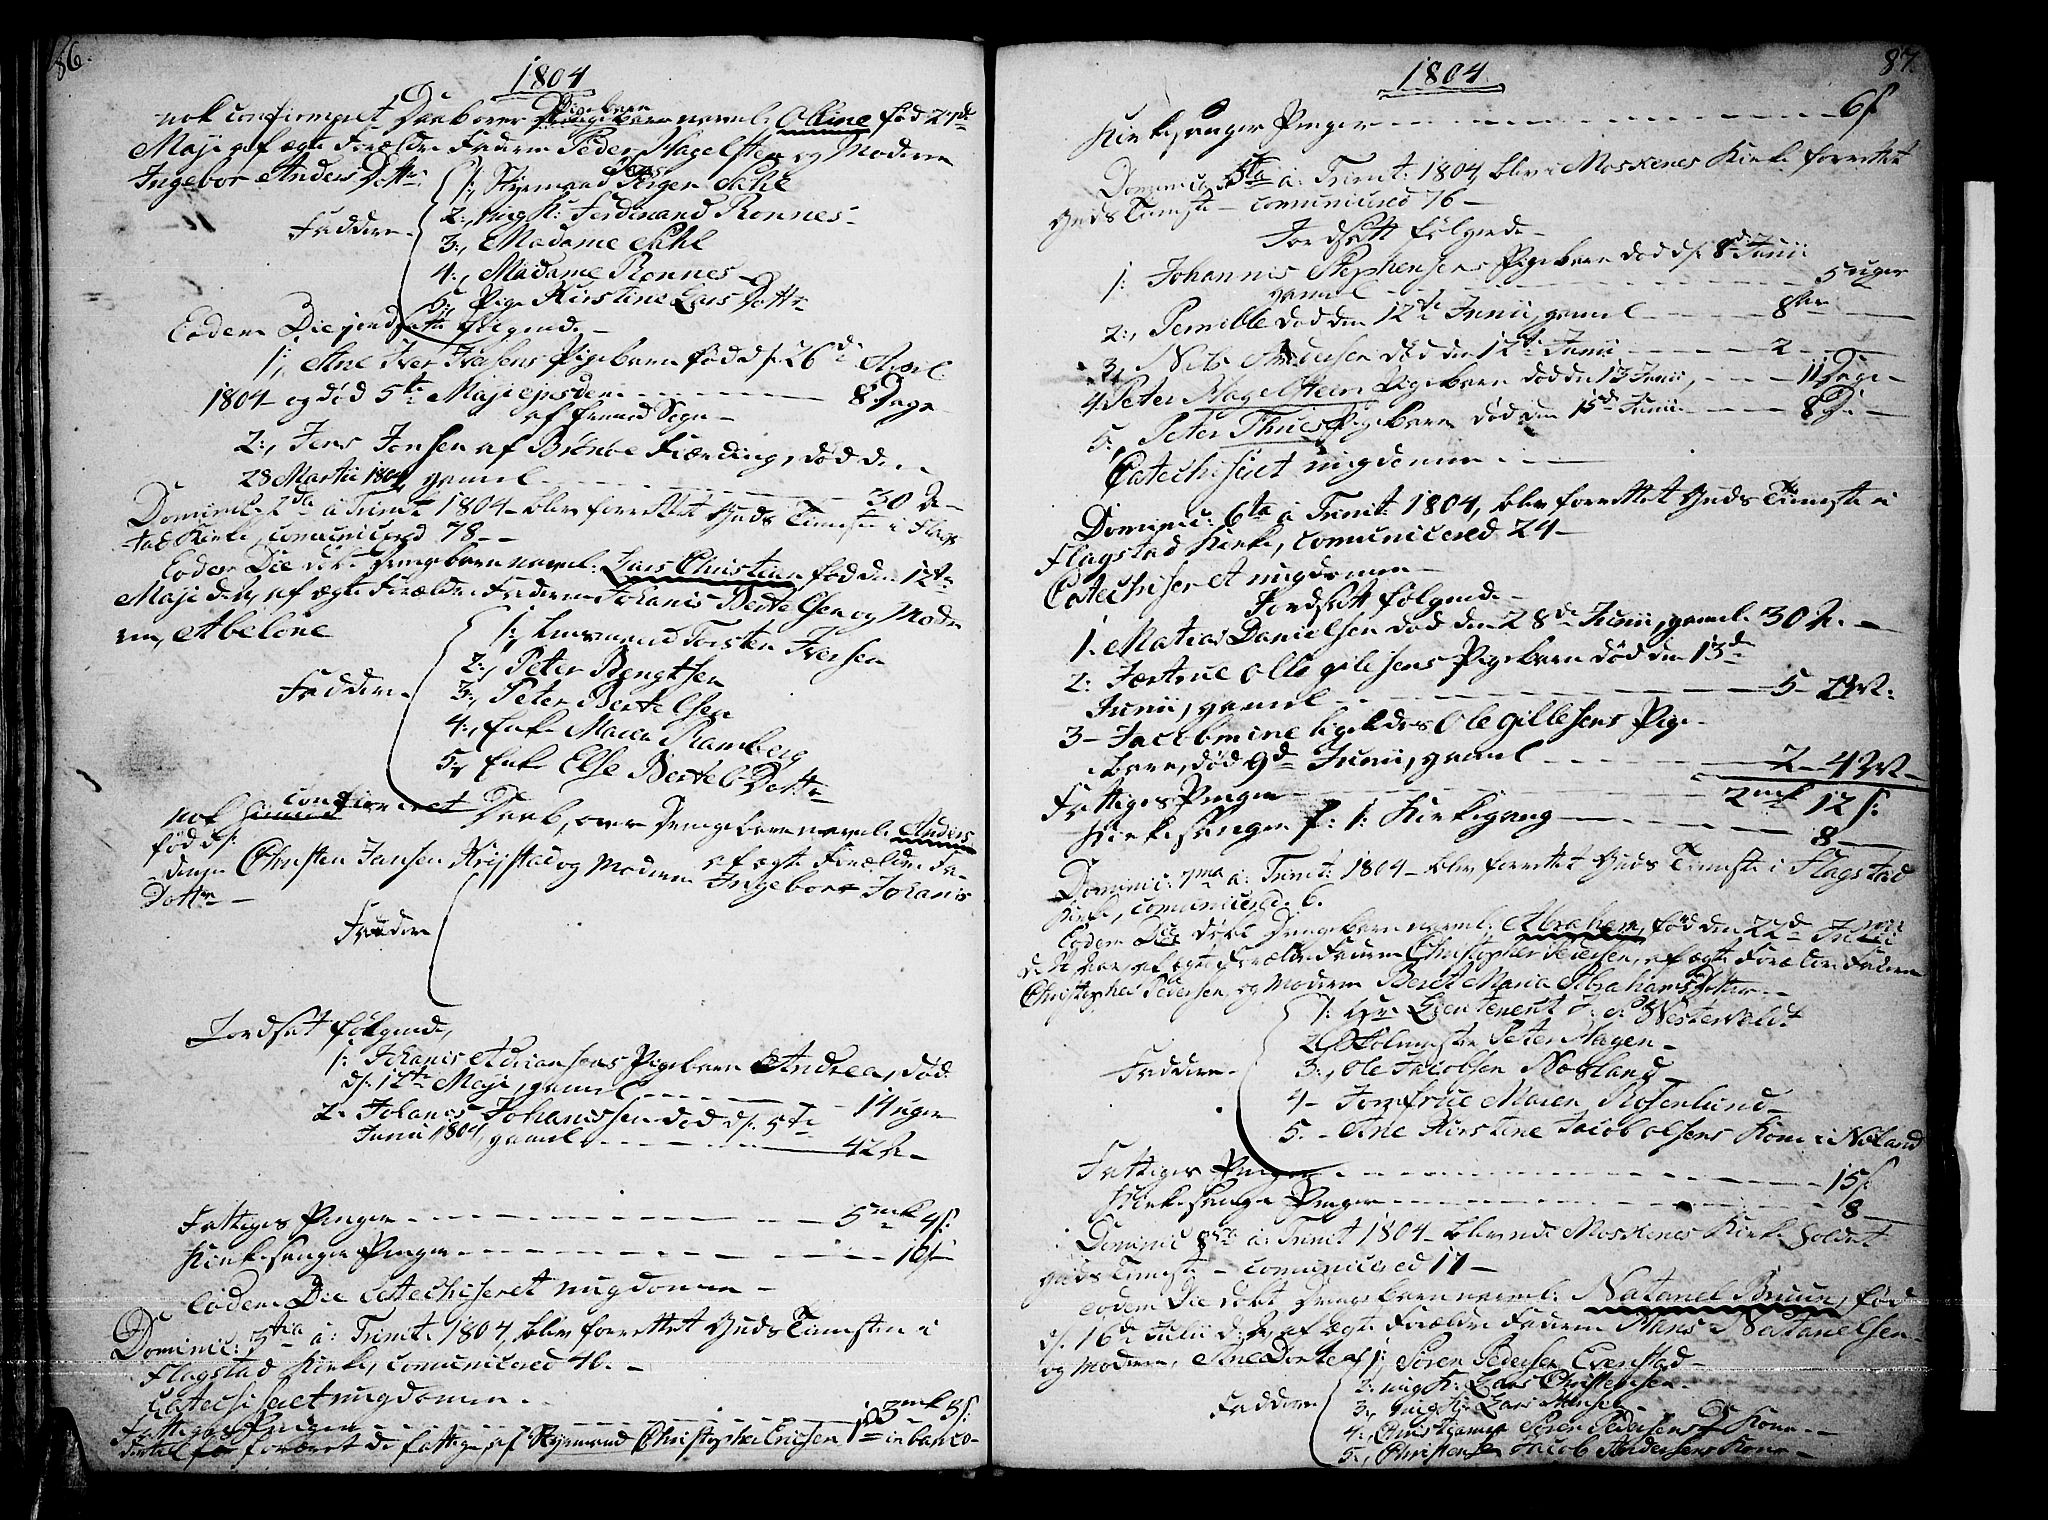 86.
1804
nok confirmeret Daab over Pigebarn navnl: Oline fød 27de
Maji af ægte Forældre Faderen Peder Hagelsteen og Moderen
Ingebor Anders Dotter
Faddere
1, Styrmand Jørgen Dahl
2, ungk: Ferdinand Rønnes
3, Madame Dahl
4, Madame Rønnes
5, Pige Kirstine Lars Dotter
Eodem Die jordsatt følgende
1, Ane Iver Iversens Pigebarn fød d: 26de April
1804 og død 5te Maji ejusdem 8 Dage
2, Jens Jensen af Brønøe Fiærding, død den
28 Martii 1804 gamel 30 Ar
Dominic: 2da à Trinit: 1804 blev forrettet Guds Tienste i Flag-
stad Kirke, comunicered 78
Eodem Die døbt Drengebarn navnl. Lars Christian fød den 12te
Maji af ægte Forældre Faderen Johanis Bertelsen og Mode-
ren, Abelone
Faddere
1, Torsten Iversen
2, Peter Bengtsen
3, Peter Bertelsen
4, Enke Maren Ramberg
5, Enke Else Bertels Dotter
nok confirmeret Daab, over Drengebarn navnl. Anders
fød d: af ægte Forældre Fa-
deren Christen Jansen og Moderen Ingebor Johanis
Dotter
Faddere
Jordsat følgende,
1: Johanis Adriansens Pigebarn Andrea, død
d: 12te Maji, gamel 14 uger
2. Johanis Johanissen død d: 5te
Junii 1804, gamel 42 Ar
Fattiges Penger 5 mk 4 s:
Kirkesanger Penger 10 s
Eodem Die Catechiseret ungdomen
Dominic: 3tia à: Trinit: 1804, blev forrettet Guds Tienste i
Flagstad Kirke, comunicered 46.
Catechiseret ungdomen
Fattiges Penger 3 mk 3 s:
foræret de fattige af Styrmand Christopher Ericsen 1 rd in banco
87.
1804.
Kirkesanger Penger 6 s
Dominic: 5ta à: Trinit: 1804, blev i Moskenes Kirke forrettet
Guds Tienste comunicered 76
Jordsatt følgende
1: Johannis Stephensens Pigebarn død d: 8de Junii
gamel 5 uger
2, Pernille død den 12te Junii, gamel
3, Nils Andersen død den 12te Junii 2
4 Peter Hagelsteen Pigebarn død d: 13 Junii, 11 Dage
5, Peter Thues Pigebarn død den 15de Junii 8 D.
Catechiseret ungdomen
Dominic: 6ta à Trinit: 1804, blev forrettet Guds Tienste i
Flagstad Kirke, comunicered 24
Catechiseret ungdomen
Jordsatt følgende
1. Matias Danielsen død den 28de Junii, gamel 30 A.
2: Jertrue Ole gilesens Pigebarn død den 13de
Junii, gamel 5
3 Jacobmine ligeledes Ole Gillesens Pige-
barn, død 9de Junii, gamel 2
Fattiges Penger 2 mk 12 s:
Kirkesanger f: 1: Kirkegang 8
Dominic: 7ma à: Trinit: 1804 blev forrettet Guds Tienste i Flagstad
Kirke, comunicered 6.
Eodem Die døbt Drengebarn navnl: Abraham, fød den 22de Junii
af ægte Forældre Faderen Christopher Pedersen, af ægte Forældre Faderen
Christopher Pedersen, og Moderen Berit Maria Abrahams Dotter
Faddere
1: Hr. Lieutenent Westervoldt
2, Skolemester Peter Hagen
3, Ole Jacobsen Nøsland
4 Jomfrue Maren Rosenlund
5. Ane Kirstine Jacob Olsens Kone i Nøsland
Fattiges Penger 15 s:
Kirkesanger Penger 8
Dominic 8va à: Trinit 1804 blev udi Moskenes Kirke holdet
Guds Tienste comunicered 17
Eodem Die døbt Drengebarn navnl: Natanel Bruun, fød
d: 16de Julii af ægte Forældre Faderen Hans Natanelsen
og Moderen, Ane Dorte
Faddere
1, Søren Pedersen Evenstad
2, ungk: Lars Christensen
3, ungk: Lars Hansen
4, Søren Pedersens Kone
5, Christense Jacob Andersens Kone